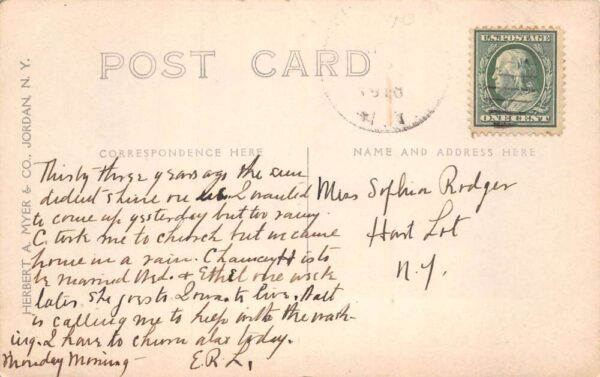 POST CARD
U.S.POSTAGE
ONE CENT
1910
N.Y.
HERBERT A. MYER & CO., JORDAN, N. Y.
CORRESPONDENCE HERE
NAME AND ADDRESS HERE
Thirty three years ago the sun
dident shine on us. I wanted
to come up yesterday but too rainy
C. took me to church but we came
home in a rain. Chauncey H is to
be married Wed. & Ethel one week
later she goes to Iowa to live. Aunt
is calling me to help with the wash-
ing. I have to churn also today.
Monday Morning - E.R.L.
Miss Sophia Rodger
Hart Lot
N.Y.